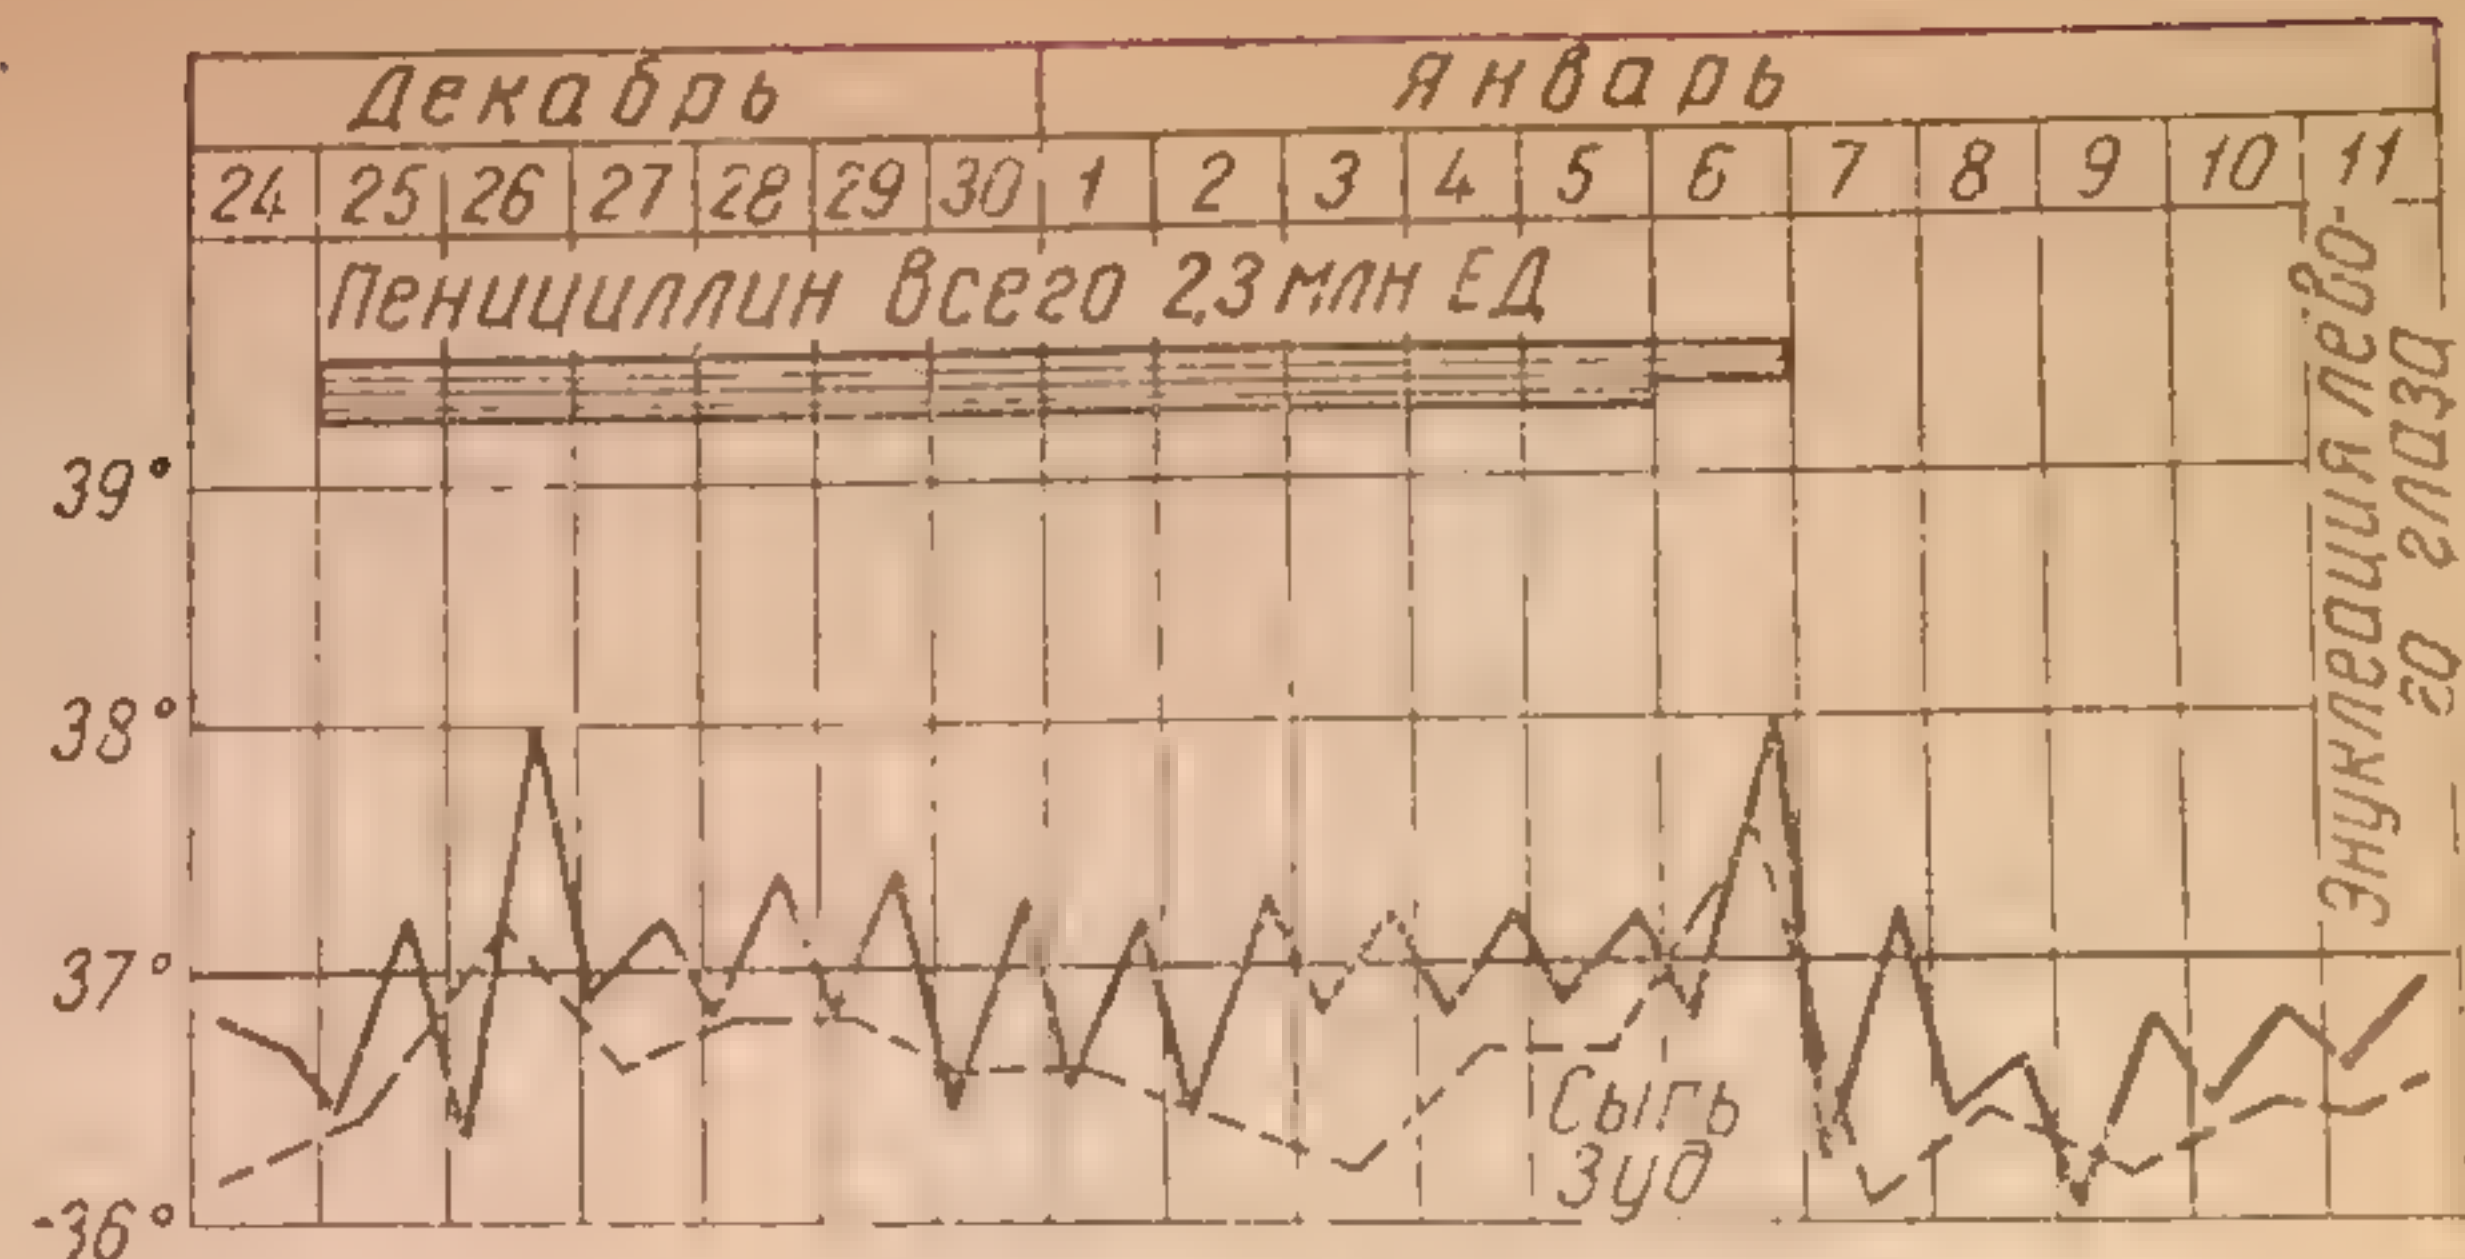 Декабрь Январь
24 25 26 27 28 29 30 1 2 3 4 5 6 7 8 9 10 11
Пенициллин всего 2,3 млн ЕД
39°
38°
37°
36°
Сыпь
Зуд
Энуклеация лево-
го глаза